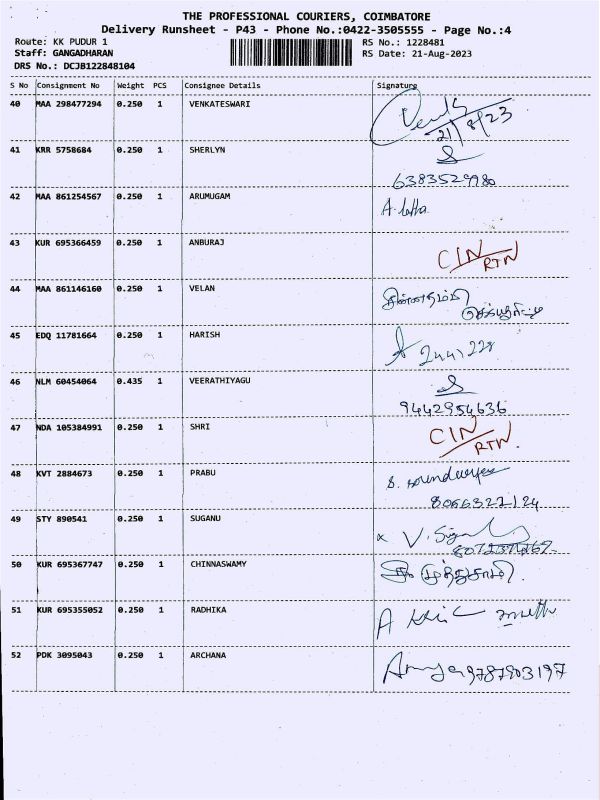 THE PROFESSIONAL COURIERS, COIMBATORE
Delivery Runsheet - P43 - Phone No.:0422-3505555 - Page No.:4
Route: KK PUDUR 1 RS No.: 1228481
Staff: GANGADHARAN RS Date: 21-Aug-2023
DRS No.: DCJB122848104
S No Consignment No Weight PCS Consignee Details Signature
40 MAA 298477294 0.250 1 VENKATESWARI
21/8/23
41 KRR 5758684 0.250 1 SHERLYN
6383529980
42 MAA 861254567 0.250 1 ARUMUGAM
43 KUR 695366459 0.250 1 ANBURAJ CIN/RTN
44 MAA 861146160 0.250 1 VELAN
45 EDQ 11781664 0.250 1 HARISH
46 NLM 60454064 0.435 1 VEERATHIYAGU
9442954636
47 NDA 105384991 0.250 1 SHRI CIN/RTN.
48 KVT 2884673 0.250 1 PRABU
8066322124
49 STY 890541 0.250 1 SUGANU
50 KUR 695367747 0.250 1 CHINNASWAMY
51 KUR 695355052 0.250 1 RADHIKA
52 PDK 3095043 0.250 1 ARCHANA 9787903197